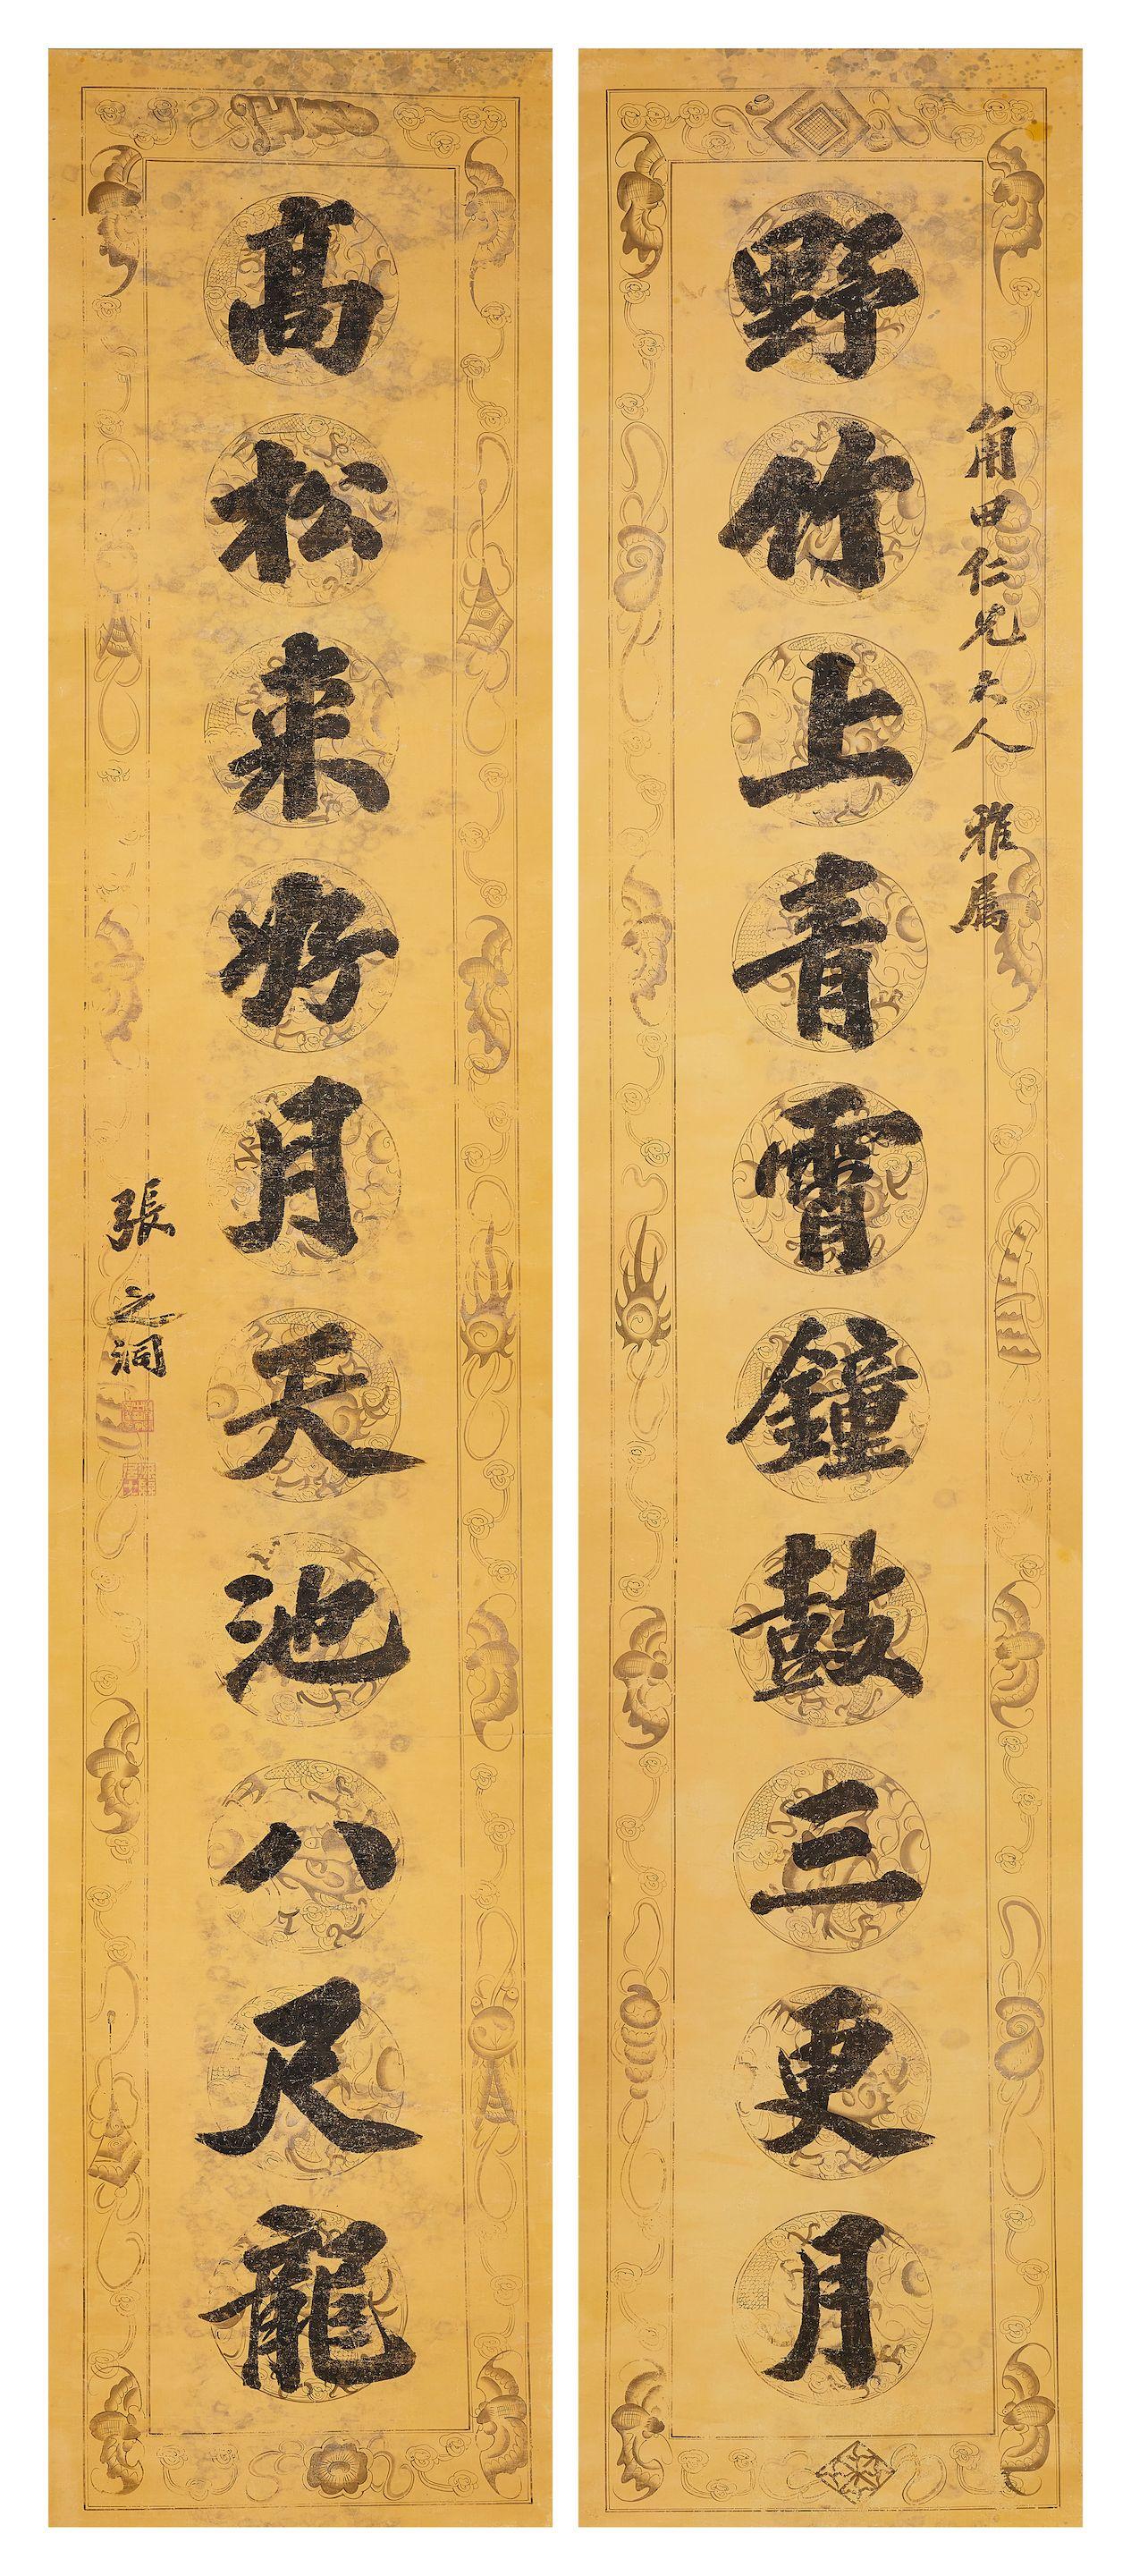 野竹上青霄鐘鼓三更月
角甲仁兄大人 雅属
髙松来好月天池八尺龍
張之洞